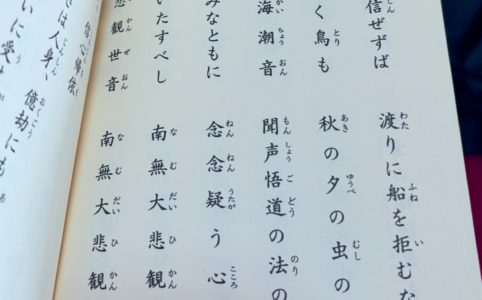 信ぜずば　渡りに船を拒むな
く鳥も　秋の夕の虫の
海潮音　聞声悟道の法の
みなともに　念念疑う心
いたすべし　南無大悲観
悲観世音　南無大悲観
心帰依
は人身、億劫にも
いに受